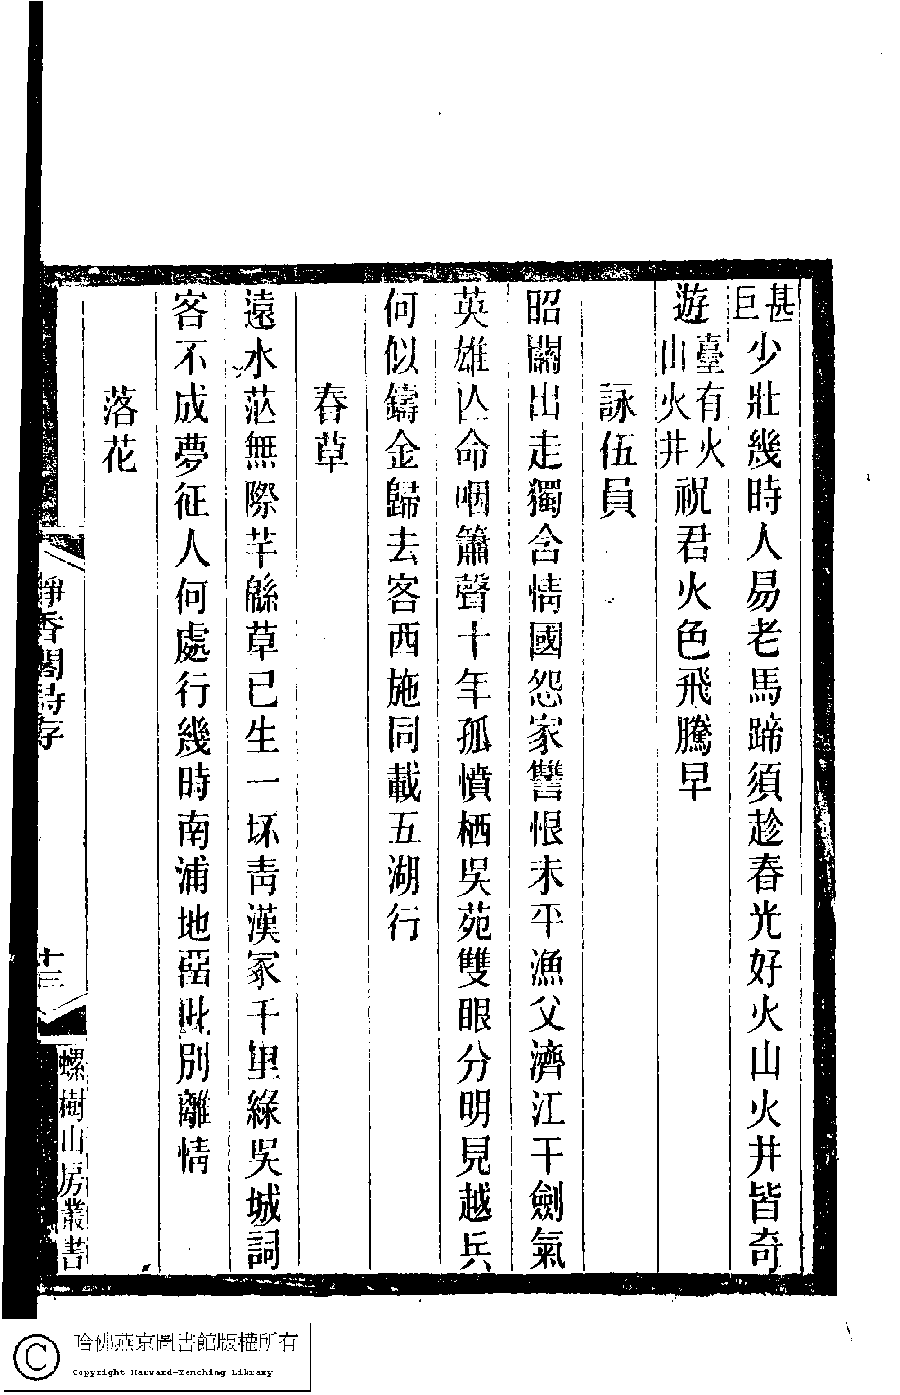 甚巨少壯幾時人易老馬蹄須趁春光好火山火井皆奇
遊臺有火山火井祝君火色飛騰早
詠伍員
昭關出走獨含情國怨家讐恨未平漁父濟江干劍氣
英雄亾命咽簫聲十年孤憤栖吳苑雙眼分明見越兵
何似鑄金歸去客西施同載五湖行
春草
遠水茫無際芊緜草已生一坏靑漢冢千里綠吳城詞
客不成夢征人何處行幾時南浦地
此別離情
落花
靜香閣詩存
十三
螺樹山房叢書
哈佛燕京圖書館版權所有
Copyright Harvard-Yenching Library